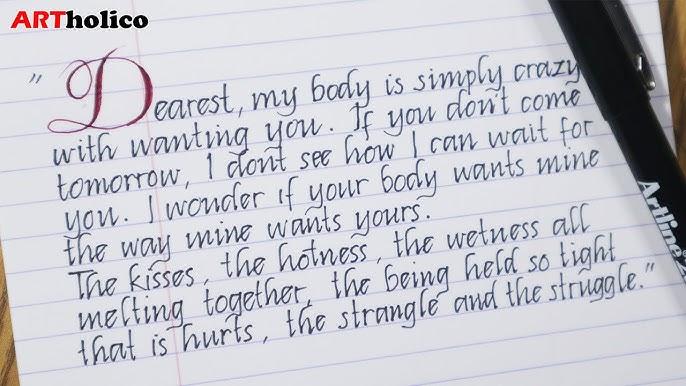 ARTholico
" Dearest, my body is simply crazy
with wanting you. If you don't come
tomorrow, I don't see how I can wait for
you. I wonder if your body wants mine
the way mine wants yours.
The kisses, the hotness, the wetness all
melting together, the being held so tight
that is hurts, the strangle and the struggle."
Artline